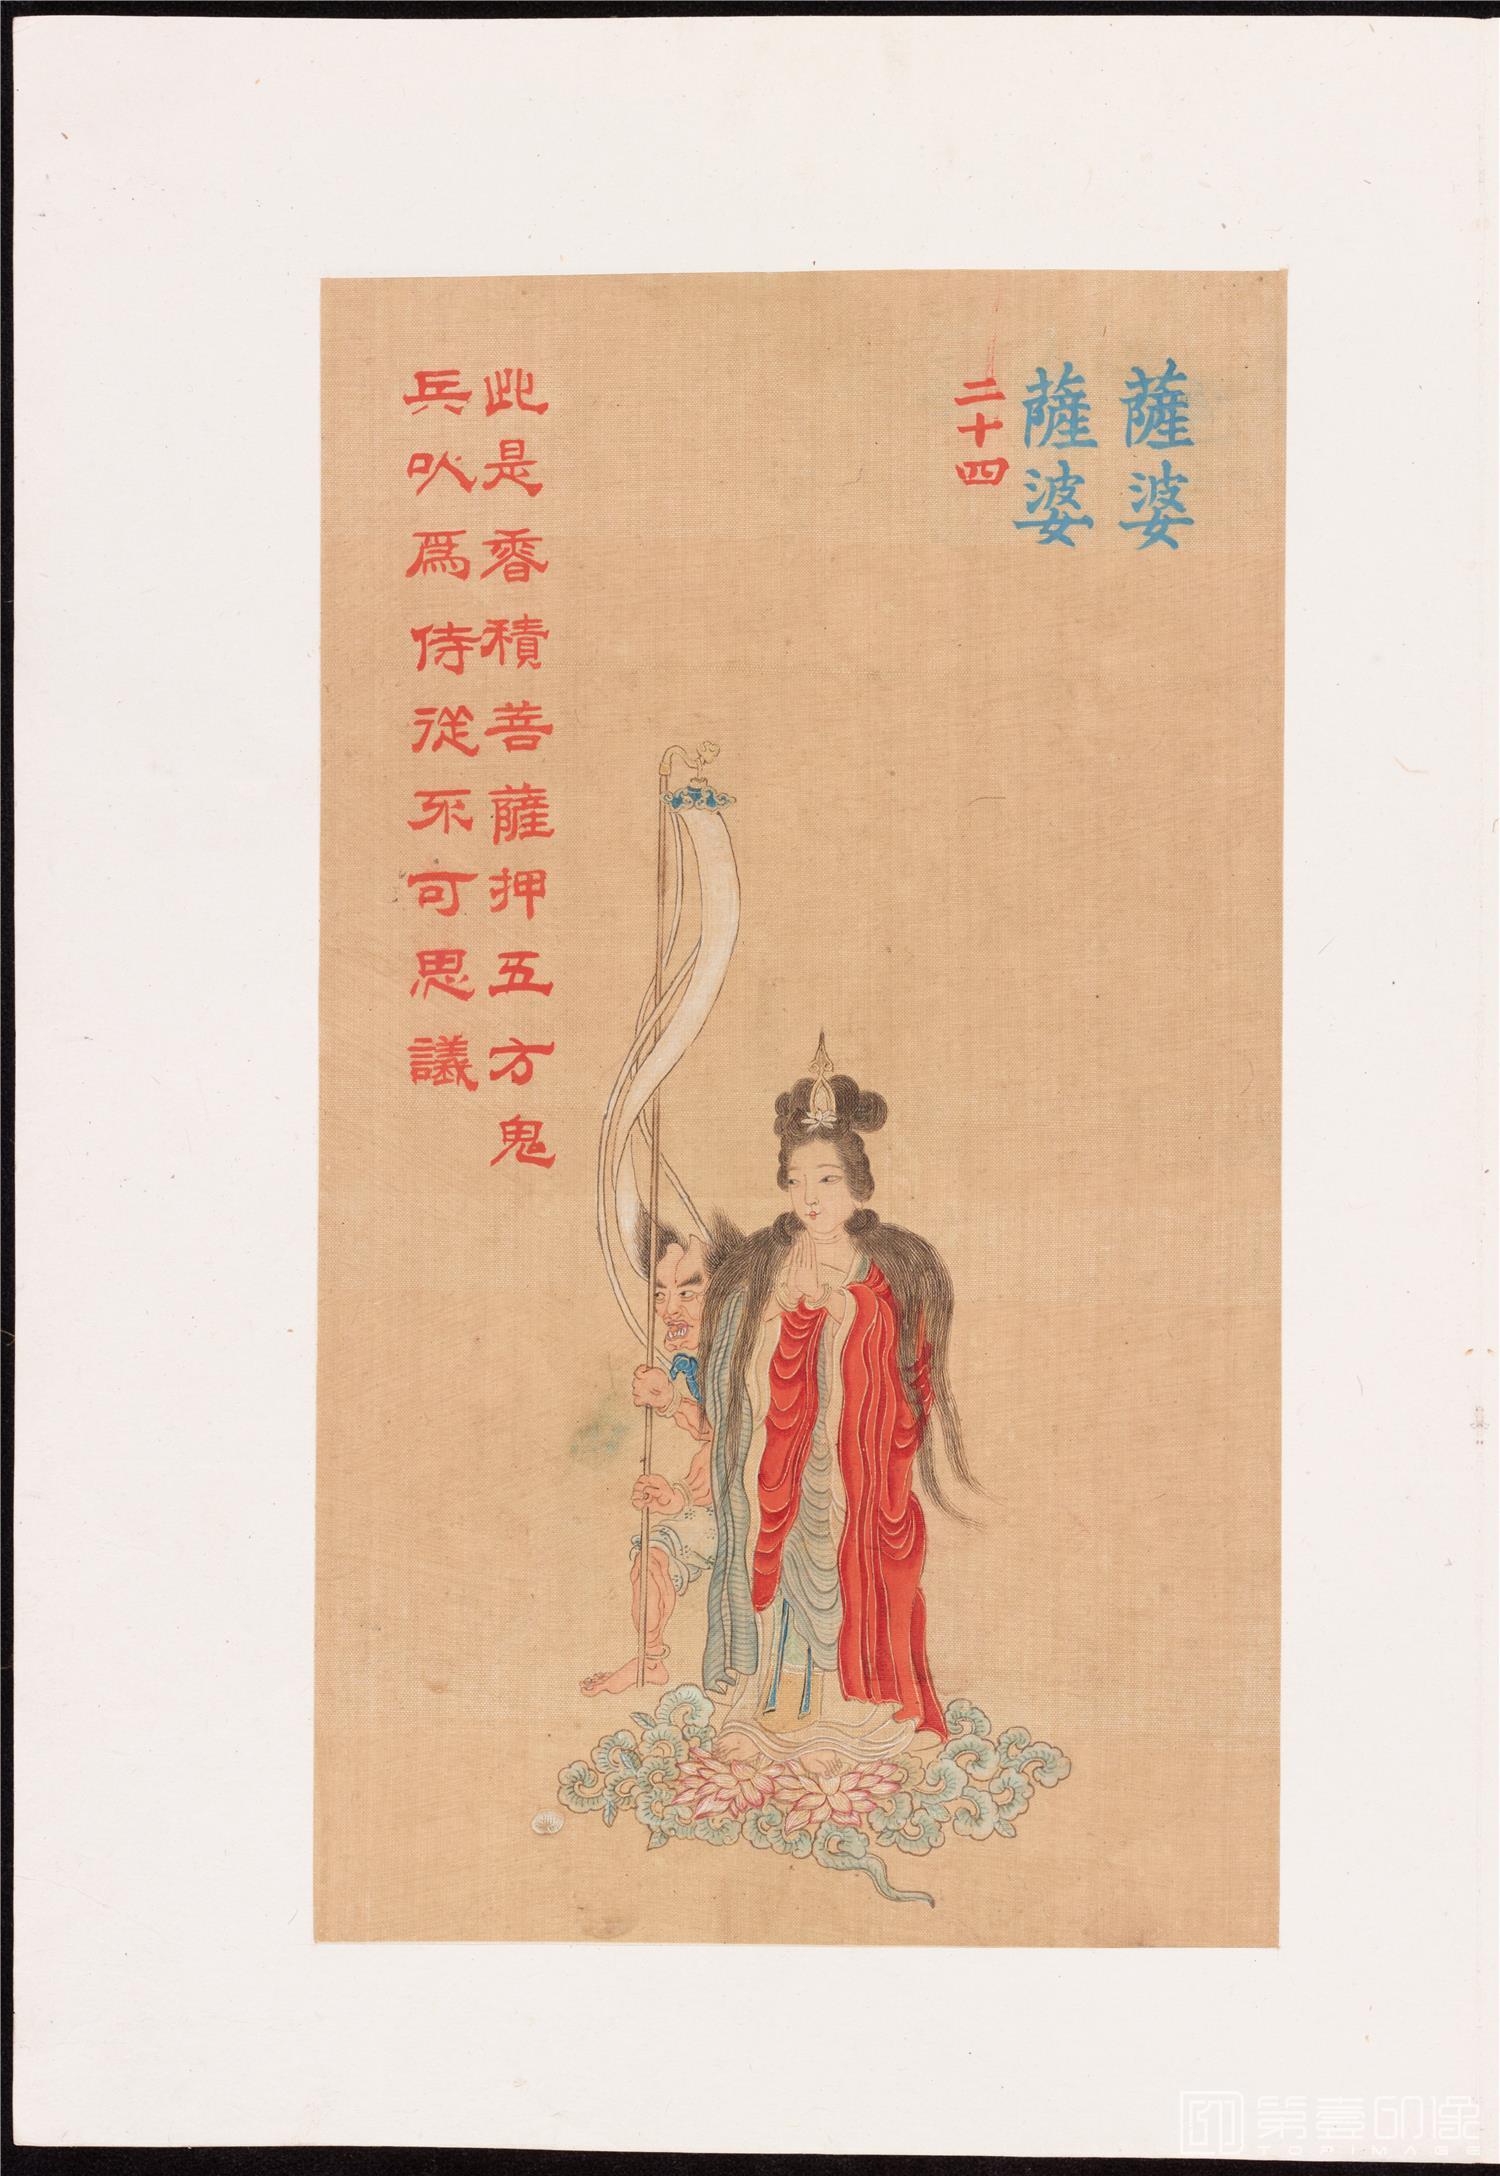 薩婆
薩婆
二十四
此是香積菩薩押五方鬼
兵以爲侍從不可思議
第壹印像
TOPIMAGE